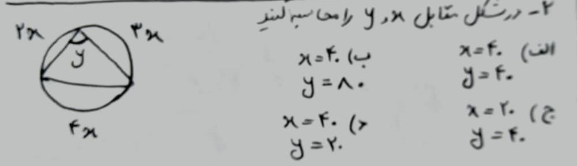 ۲- در شکل مقابل x و y را محاسبه کنید
الف) x=۴۰
y=۴۰
ب) x=۴۰
y=۸۰
ج) x=۲۰
y=۴۰
د) x=۴۰
y=۲۰
۲x
۳x
y
۴x